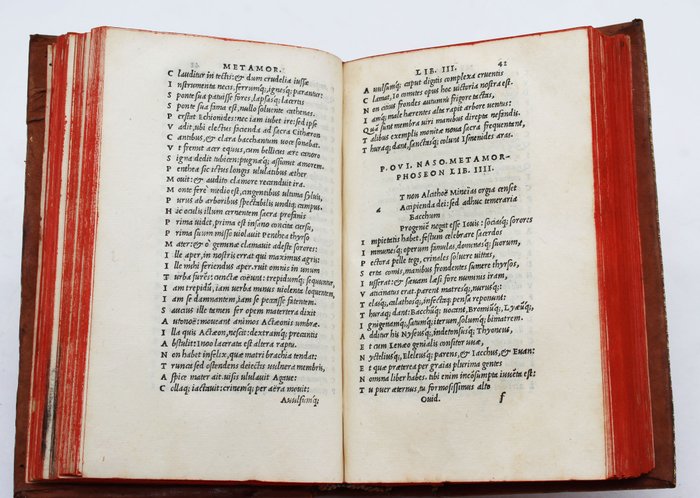 METAMOR.
C lauditur in tectis: & dum crudelia iussæ
I nstrumenta necis, ferrumq;, ignesq; parantur:
S ponte sua patuisse fores, lapsasq; lacertis
S ponte sua fama est, nullo soluente cathenas.
P erstat Echionides: nec iam iubet ire: sed ipse
V adit, ubi electus facienda ad sacra Cithæron
C antibus, & clara bacchantum uoce sonabat.
V t fremit acer equus, cum bellicus ære canoro
S igna dedit tubicen: pugnæq; assumit amorem.
P enthea sic ictus longis ululatibus æther
M ouit: & audito clamore recanduit ira.
M onte ferè medio est, cingentibus ultima syluis,
P urus ab arboribus spectabilis undiq; campus.
H ic oculis illum cernentem sacra profanis
P rima uidet, prima est insano concita cursu,
P rima suum misso uiolauit Penthea thyrso
M ater: & ô geminæ clamauit adeste sorores:
I lle aper, in nostris errat qui maximus agris:
I lle mihi feriendus aper. ruit omnis in unum
T urba furens: cunctæ coëunt: trepidumq; sequuntur,
I am trepidũ, iam uerba minus uiolenta loquentem,
I am se damnantem, iam se peccasse fatentem.
S aucius ille tamen fer opem matertera dixit
A utonoë: moueant animos Actæonis umbræ.
I lla quis Actæon, nescit: dextramq; precantis
A bstulit: Inoo lacerata est altera raptu.
N on habet infelix, quæ matri brachia tendat:
T runca sed ostendens deiectis uulnera membris,
A spice mater ait. uisis ululauit Agaue:
C ollaq; iactauit: crinemq; per aëra mouit:
Auulsumq;
LIB. III. 41
A uulsumq; caput digitis complexa cruentis
C lamat, io comites opus hæc uictoria nostra est.
N on citius frondes autumni frigore tactas,
I amq; male hærentes alta rapit arbore uentus:
Q uã sunt membra uiri manibus direpta nefandis.
T alibus exemplis monitæ noua sacra frequentant,
T huraq; dant, sanctasq; colunt Ismenides aras.
P. OVI. NASO. METAMOR-
PHOSEON LIB. IIII.
a T non Alcathoë Mineias orgia censet
Accipienda dei: sed adhuc temeraria
Bacchum
Progeniẽ negat esse Iouis: sociasq; sorores
I mpietatis habet. festum celebrare sacerdos
I mmunesq; operum famulas, dominasq; suorum,
P ectora pelle tegi, crinales soluere uittas,
S erta comis, manibus frondentes sumere thyrsos,
I usserat: & sæuam læsi fore numinis iram,
V aticinatus erat. parent matresq;, nurusq;:
T elasq;, calathosq;, infectaq; pensa reponunt:
T huraq; dant: Bacchũq; uocant, Bromiũq;, Lyæũq;,
I gnigenamq;, satumq; iterum, solumq; bimatrem.
A dditur his Nyseus, indetonsusq; Thyoneus,
E t cum Lenæo genialis consitor uuæ,
N ycteliusq;, Eleleusq; parens, & Iacchus, & Euan:
E t quæ præterea per graias plurima gentes
N omina liber habes. tibi enim incõsumpta iuuẽta est:
T u puer æternus, tu formosissimus alto
Ouid. f